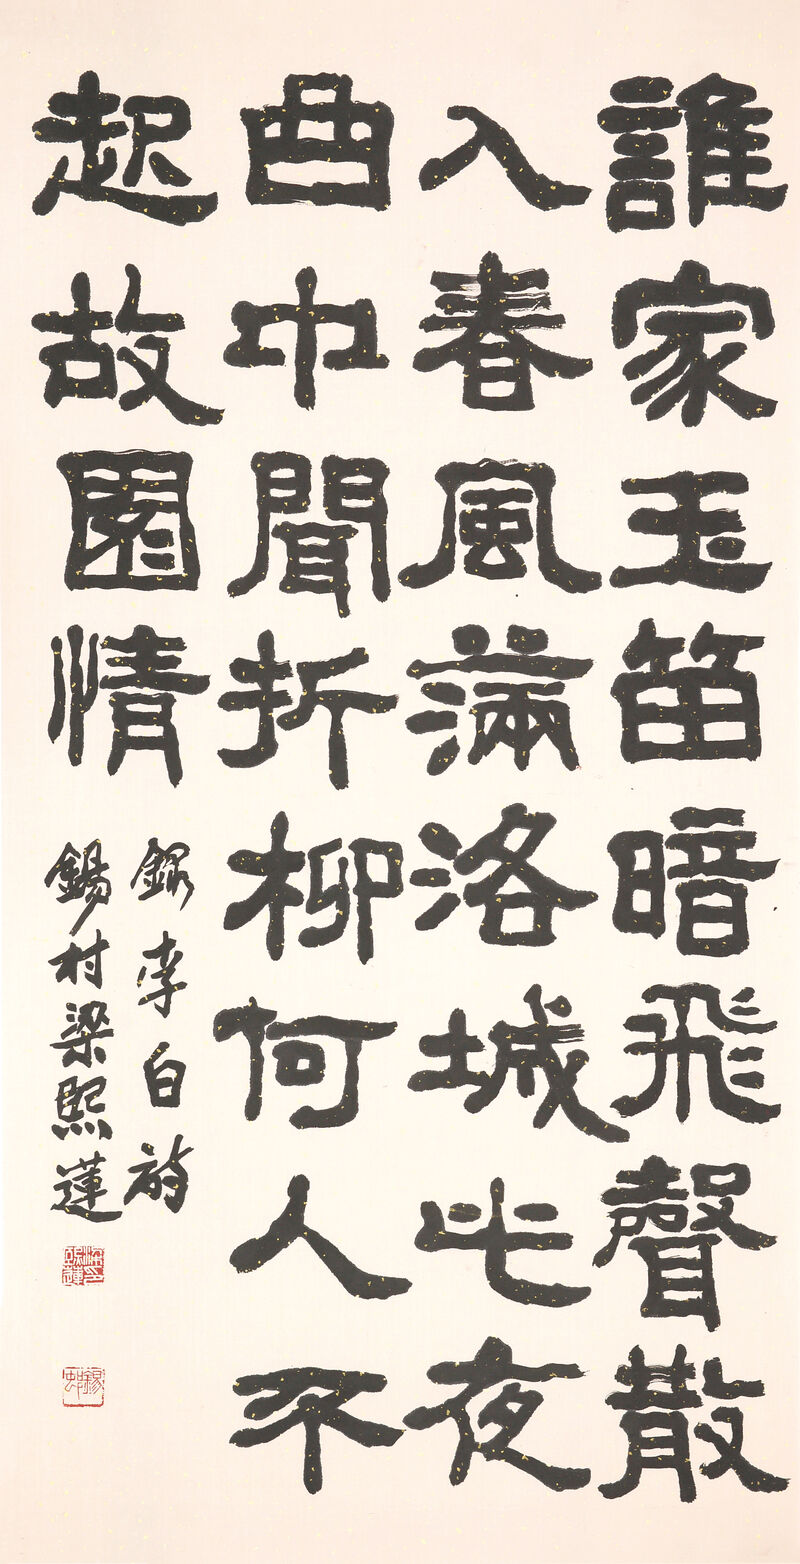 誰家玉笛暗飛聲散
入春風滿洛城此夜
曲中聞折柳何人不
起故園情
錄李白詩
錫村梁熙蓮